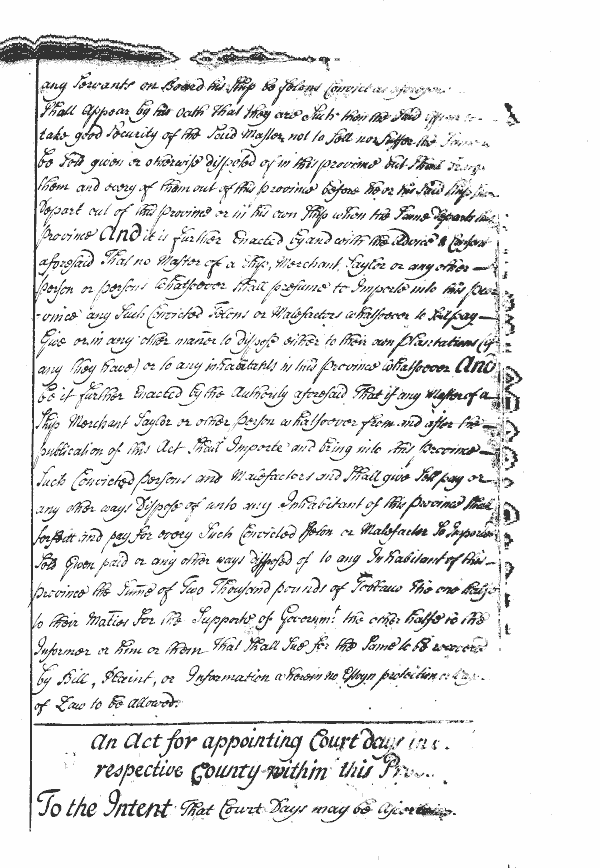 any Servants on Board his Ship be felons Convict as aforesd
Shall Appear by his Oath That they are Such then the Said
take good Security of the Said Master not to Sell nor Suffer the Same
be Sold given or otherwise disposed of in this province but Shall
them and every of them out of this province before he or his Said Ship
Depart out of this Province or in his own Ship when the Same departs this
Province And it is further Enacted by and with the advice & Consent
aforesaid That no Master of a Ship, Merchant, Saylor or any other —
person or persons whatsoever Shall presume to Importe into this pro
-vince any Such Convicted Felons or Malefactors whatsoever to Sell pay —
Give or in any other manner to dispose either to their own plantations (if
any they have) or to any inhabitants in this Province whatsoever And
be it further Enacted by the Authority aforesaid That if any Master of a
Ship Merchant Saylor or other person whatsoever from and after the
publication of this Act Shall Importe and bring into this Province —
Such Convicted persons and Malefactors and Shall give Sell pay or —
any other ways Dispose of unto any Inhabitant of this province Shall
forfeit and pay for every Such Convicted ffelon or Malefactor So Imported
Sold Given paid or any other ways disposed of to any Inhabitant of this —
province the Sume of Two Thousand pounds of Tobacco the one halfe
to their Maties for the Supporte of Governmt the other halfe to the
Informer or him or them That Shall Sue for the Same to be recovered
by Bill, Plaint, or Information wherein no Essoyn protection or
of Law to be allowed.
An Act for appointing Court days in
respective County within this
To the Intent That Court Days may be